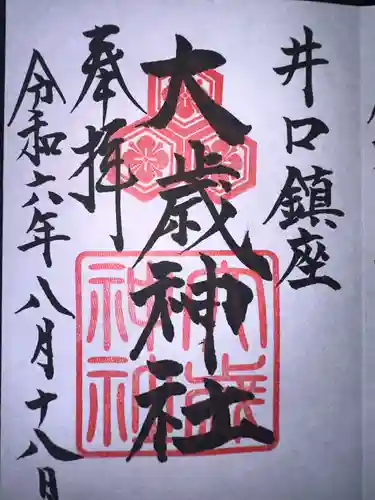 井口鎮座
大歳神社
奉拝
令和六年八月十八日
大歳
神社